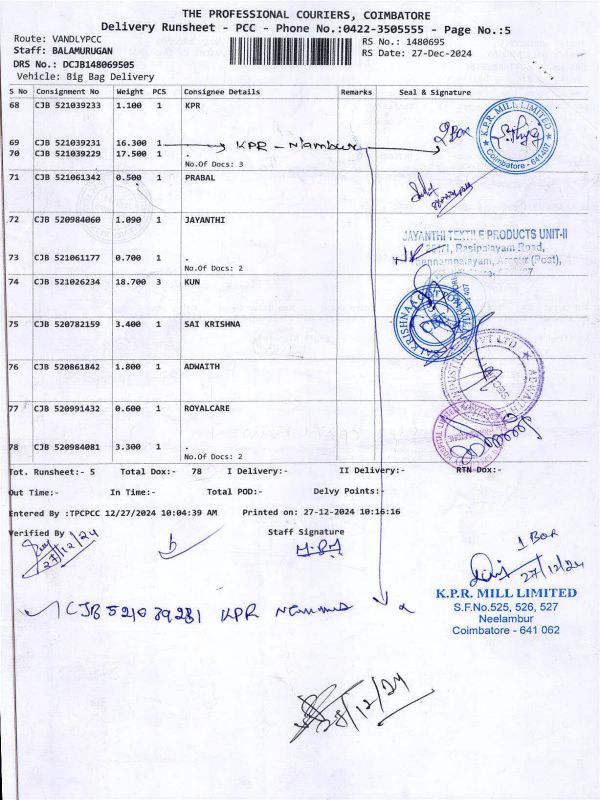 THE PROFESSIONAL COURIERS, COIMBATORE
Delivery Runsheet - PCC - Phone No.:0422-3505555 - Page No.:5
Route: VANDLYPCC
RS No.: 1480695
Staff: BALAMURUGAN
RS Date: 27-Dec-2024
DRS No.: DCJB148069505
Vehicle: Big Bag Delivery
S No Consignment No Weight PCS Consignee Details Remarks Seal & Signature
68 CJB 521039233 1.100 1 KPR
2 Box
K.P.R. MILL LIMITED
Coimbatore - 641407
69 CJB 521039231 16.300 1 KPR - Nambur
70 CJB 521039229 17.500 1 .
No.Of Docs: 3
71 CJB 521061342 0.500 1 PRABAL
72 CJB 520984060 1.090 1 JAYANTHI
JAYANTHI TEXTILE PRODUCTS UNIT-II
Rasipalayam Road,
73 CJB 521061177 0.700 1 .
No.Of Docs: 2
74 CJB 521026234 18.700 3 KUN
75 CJB 520782159 3.400 1 SAI KRISHNA
76 CJB 520861842 1.800 1 ADWAITH
77 CJB 520991432 0.600 1 ROYALCARE
78 CJB 520984081 3.300 1 .
No.Of Docs: 2
Tot. Runsheet:- 5 Total Dox:- 78 I Delivery:- II Delivery:- RTN Dox:-
Out Time:- In Time:- Total POD:- Delvy Points:-
Entered By :TPCPCC 12/27/2024 10:04:39 AM Printed on: 27-12-2024 10:16:16
Verified By Staff Signature
27/12/24
1 Box
27/12/24
K.P.R. MILL LIMITED
S.F.No.525, 526, 527
Neelambur
Coimbatore - 641 062
CJB 521039231 KPR
28/12/24